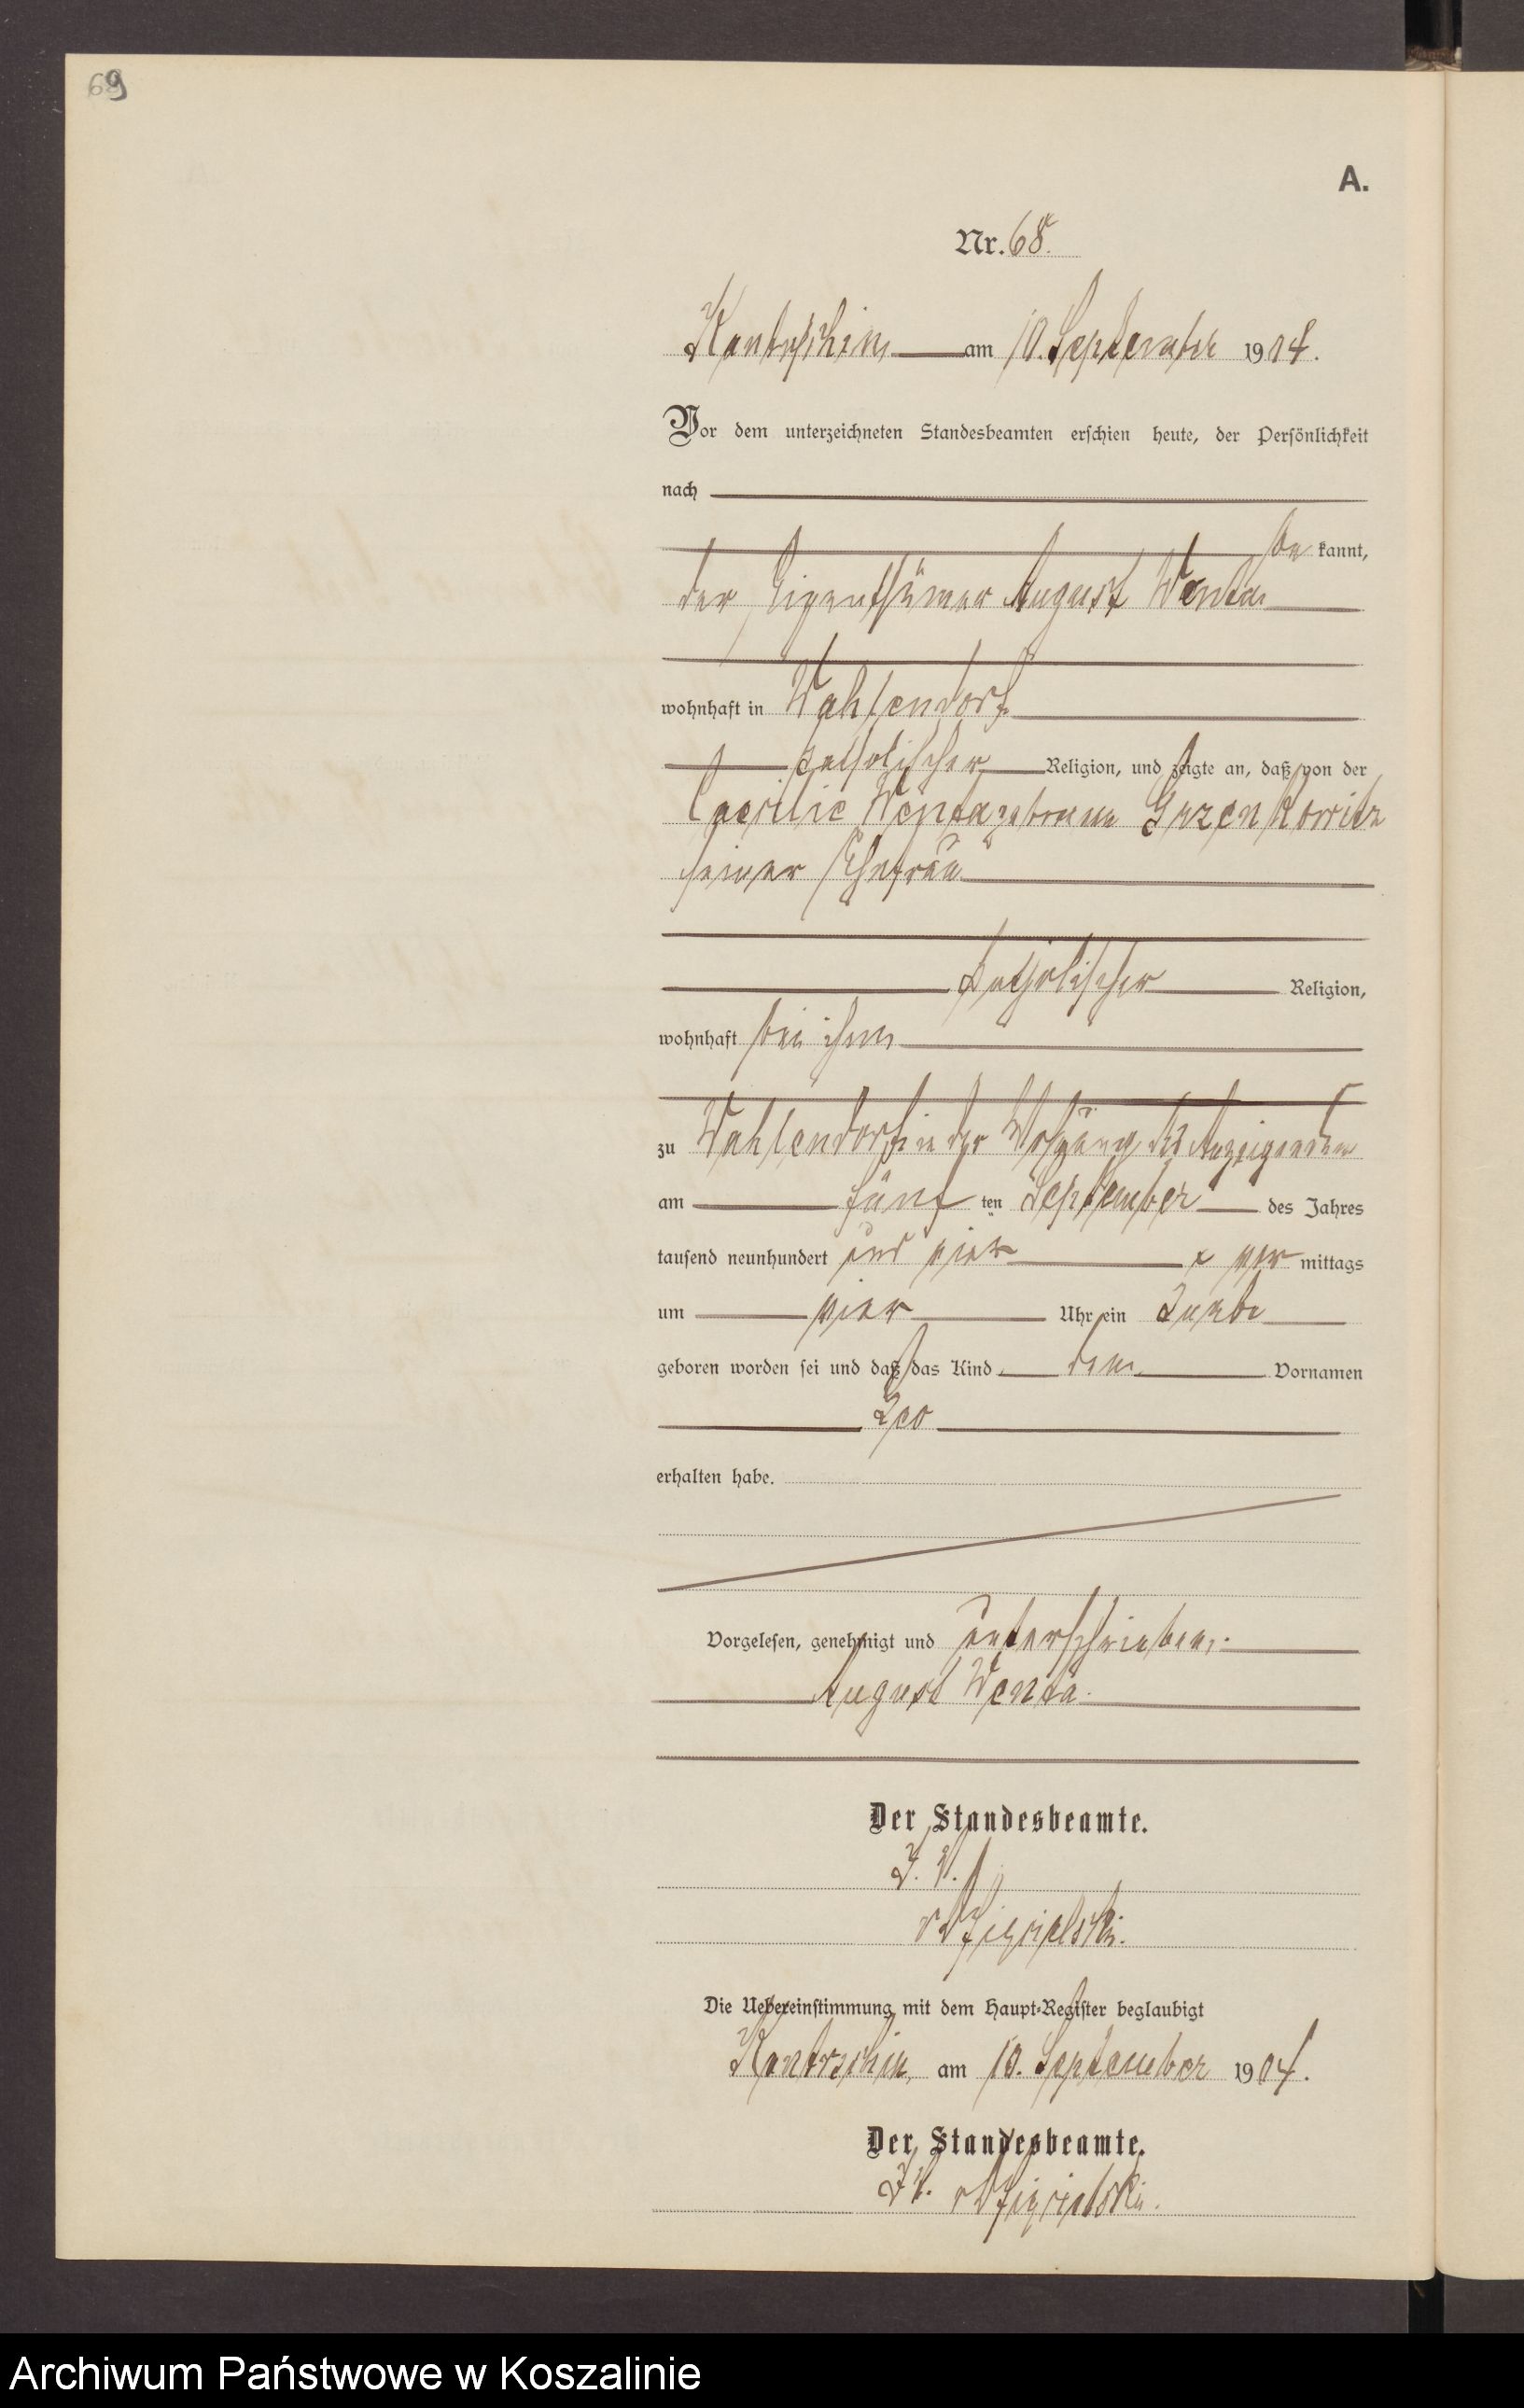 69
A.
Nr. 68.
Kantrschin am 10. September 1904.
Vor dem unterzeichneten Standesbeamten erschien heute, der Persönlichkeit
nach
be kannt,
der Eigenthümer August Wenta
wohnhaft in Wahlendorf
katholischer Religion, und zeigte an, daß von der
Caecilie Wenta geborene Grzenkowitz
seiner Ehefrau
katholischer Religion,
wohnhaft bei ihm
zu Wahlendorf in der Wohnung des Anzeigenden
am fünf ten September des Jahres
tausend neunhundert und vier vor mittags
um vier Uhr ein Knabe
geboren worden sei und daß das Kind den Vornamen
Leo
erhalten habe.
Vorgelesen, genehmigt und unterschrieben.
August Wenta.
Der Standesbeamte.
I. V.
Die Uebereinstimmung mit dem Haupt-Register beglaubigt
Kantrschin, am 10. September 1904.
Der Standesbeamte.
I. V.
Archiwum Państwowe w Koszalinie